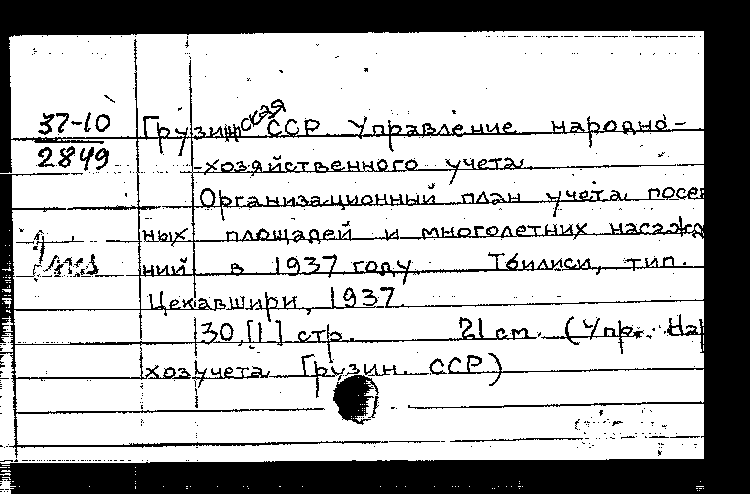 37-10
2849
Грузинская ССР Управление народно-
-хозяйственного учета.
Организационный план учета посев
ных площадей и многолетних насажд
ний в 1937 году Тбилиси, тип.
Цекавшири, 1937.
30, [1] стр. 21 см. (Упр. Нар
хозучета Грузин. ССР)